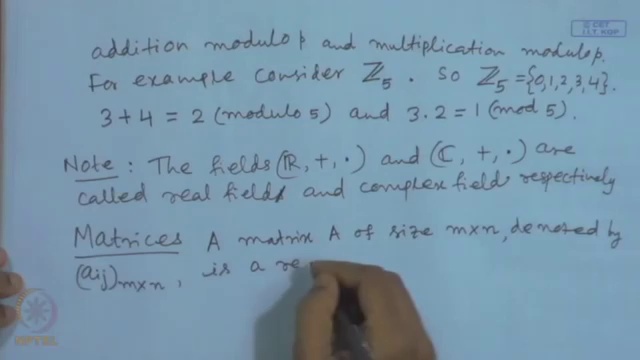 © CET
I.I.T. KGP
addition modulo p and multiplication modulo p.
For example consider ℤ₅ . So ℤ₅ = {0,1,2,3,4}.
3 + 4 = 2 (modulo 5) and 3.2 = 1 (mod 5).
Note : The fields (ℝ, +, .) and (ℂ, +, .) are
called real field and complex field respectively
Matrices A matrix A of size m×n, denoted by
(aij)m×n , is a re
NPTEL